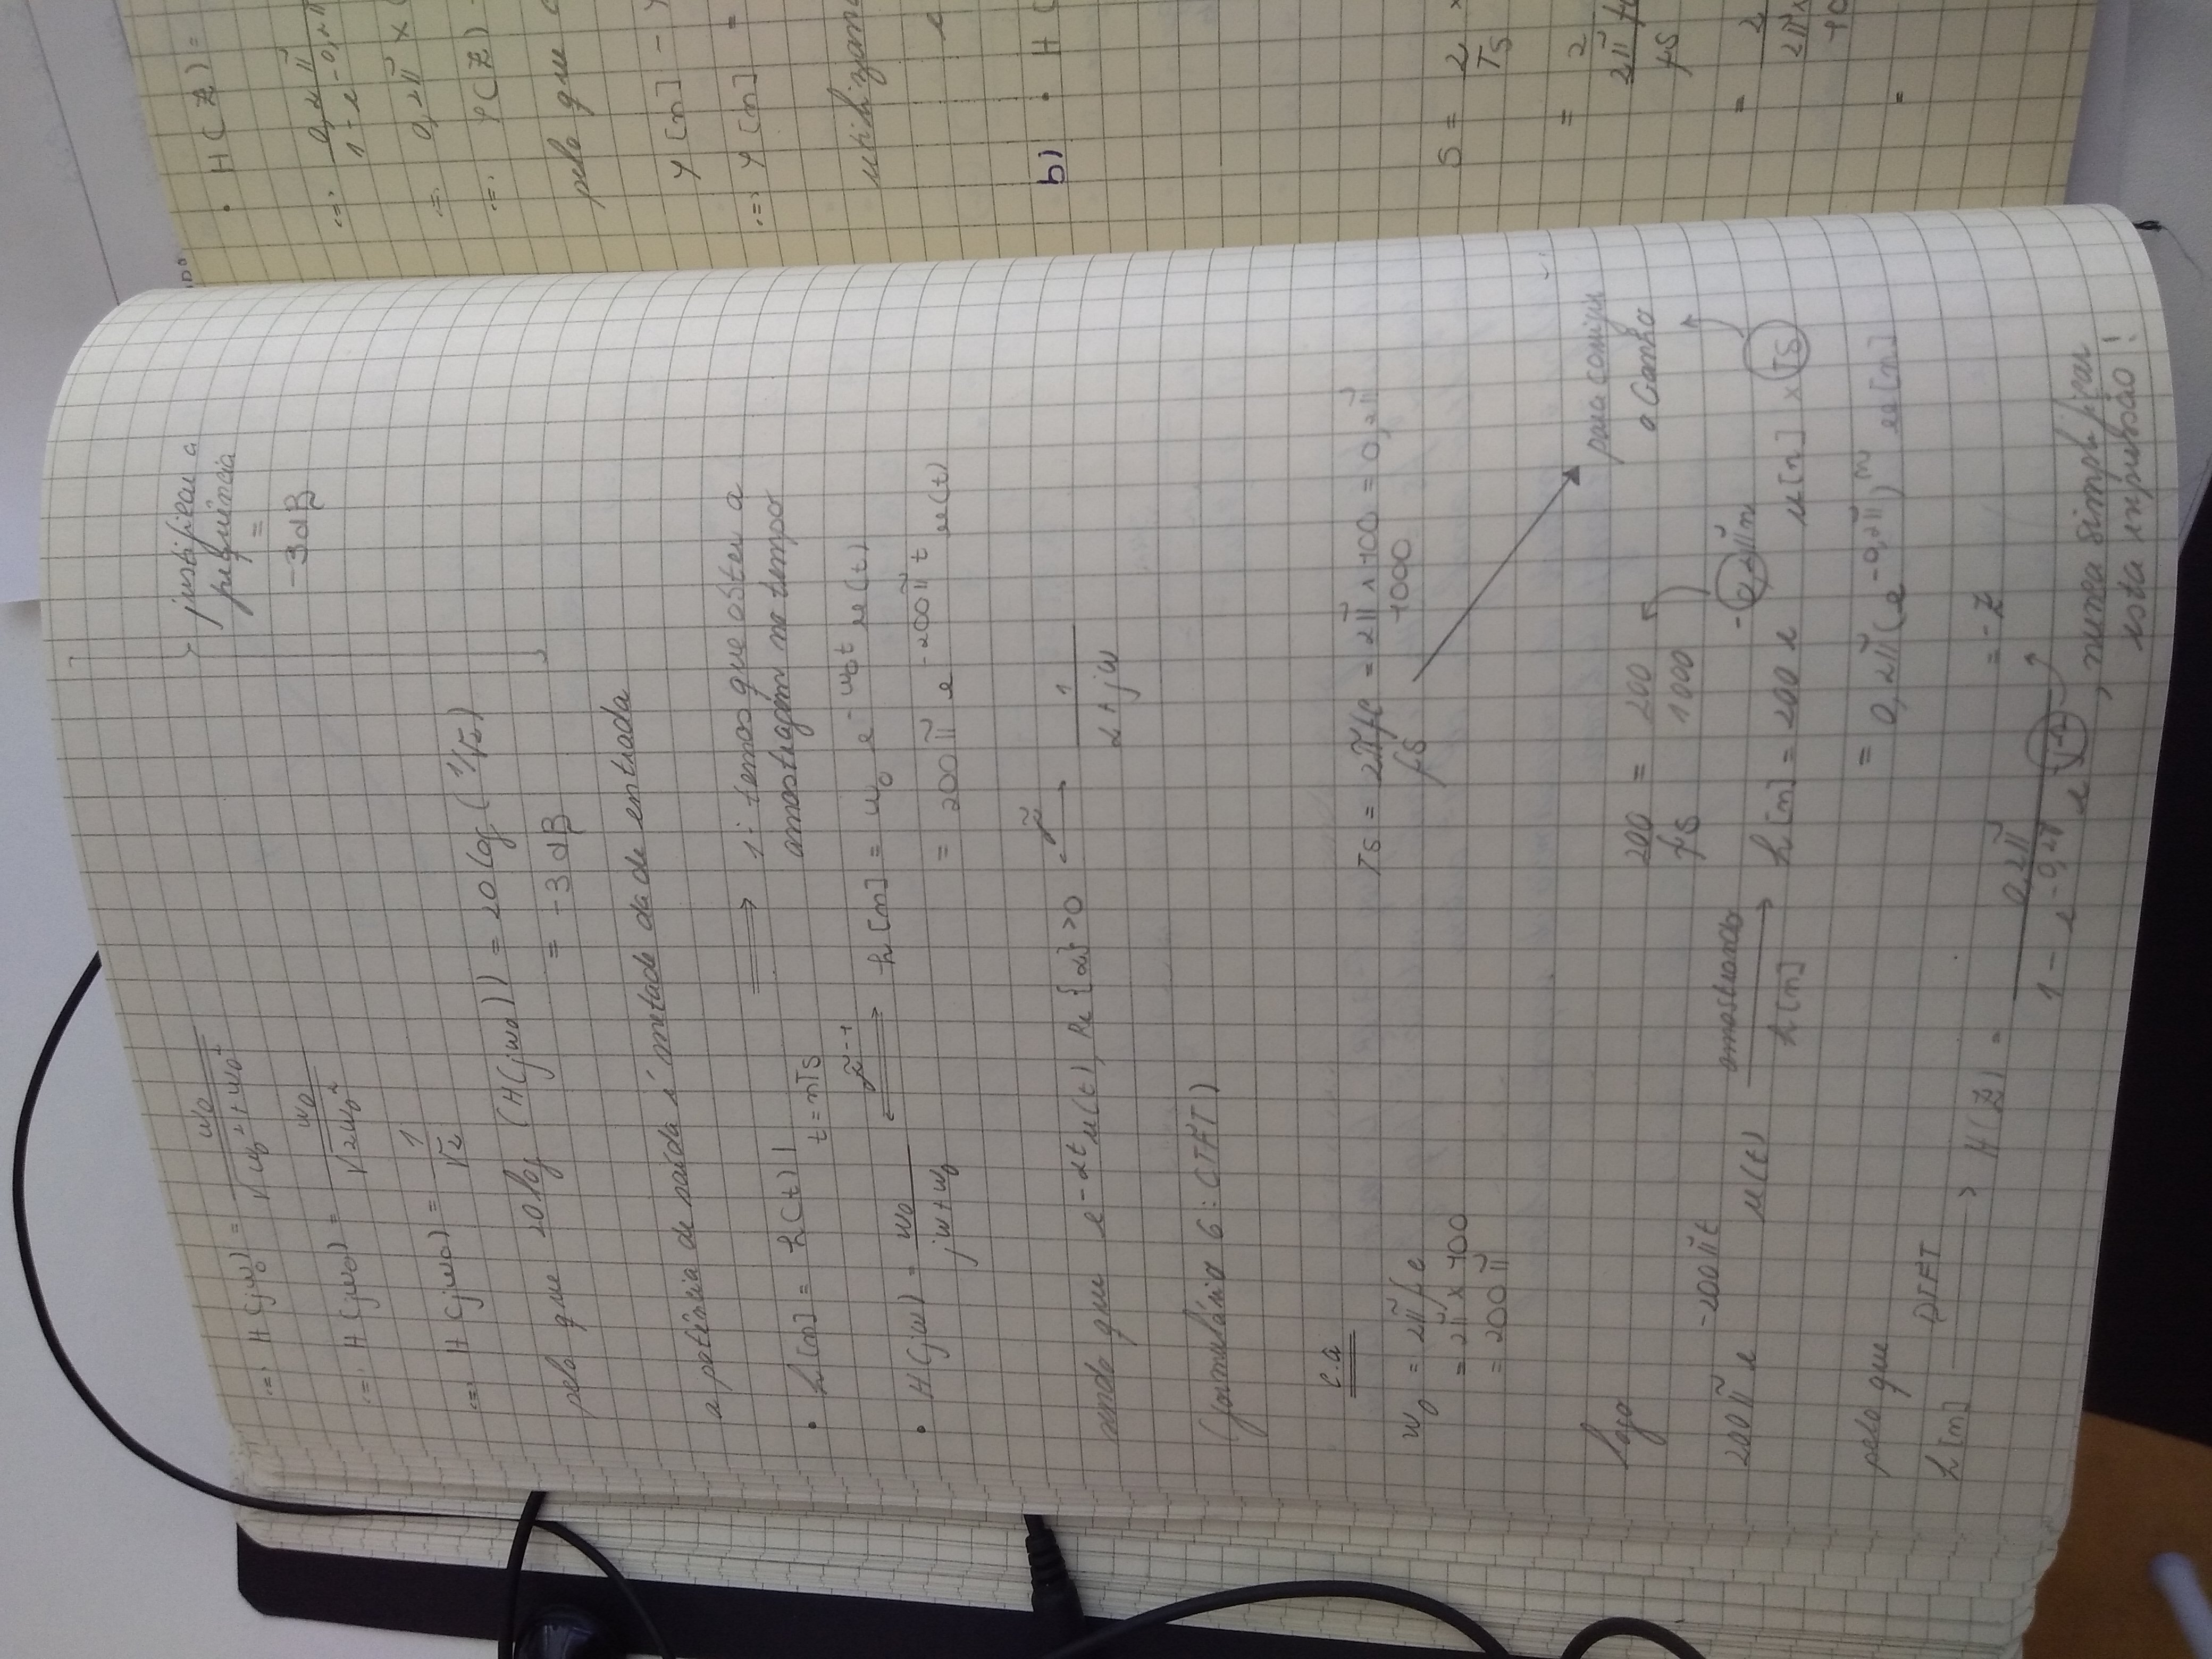 <=> H(jω₀) = ω₀ / √(ω₀² + ω₀²)
<=> H(jω₀) = ω₀ / √(2ω₀²)
<=> H(jω₀) = 1/√2
pelo que 20log (H(jω₀)) = 20log (1/√2)
= -3 dB
justificar a
frequência
=
-3dB
a potência de saída é metade da de entrada
• h[n] = h(t) | t = nTS ⟹ 1º temos que obter a
amostragem no tempo
• H(jω) = ω₀ / (jω + ω₀) ⟺ F⁻¹ h[n] = ω₀ e^(-ω₀t) u(t)
= 200π e^(-200πt) u(t)
sendo que e^(-αt) u(t), Re{α}>0 ⟷ F 1 / (α + jω)
(formulário 6: CTFT)
c.a
ω₀ = 2πfc
= 2π × 100
= 200π
TS = 2πfc / fS = 2π × 100 / 1000 = 0,2π
para corrigir
o Ganho
logo
200 / fS = 200 / 1000
200π e^(-200πt) u(t) amostrando → h[n] h[n] = 200 e^(-0,2πn) u[n] × TS
= 0,2π(e^(-0,2π))^n u[n]
pelo que
h[n] DTFT → H(Z) = 0,2π / (1 - e^(-0,2π) e^(-jΩ)) = -Z
, nunca simplificar
esta expressão!
• H(Z) =
<=> 0,2π / 1 - e^(-0,2π
<=> 0,2π ×
<=> Y(Z)
pelo que
y[n] -
<=> y[n] =
b)
• H(
S = 2 / TS ×
= 2 / 2π
fS
= 2
2π×
=